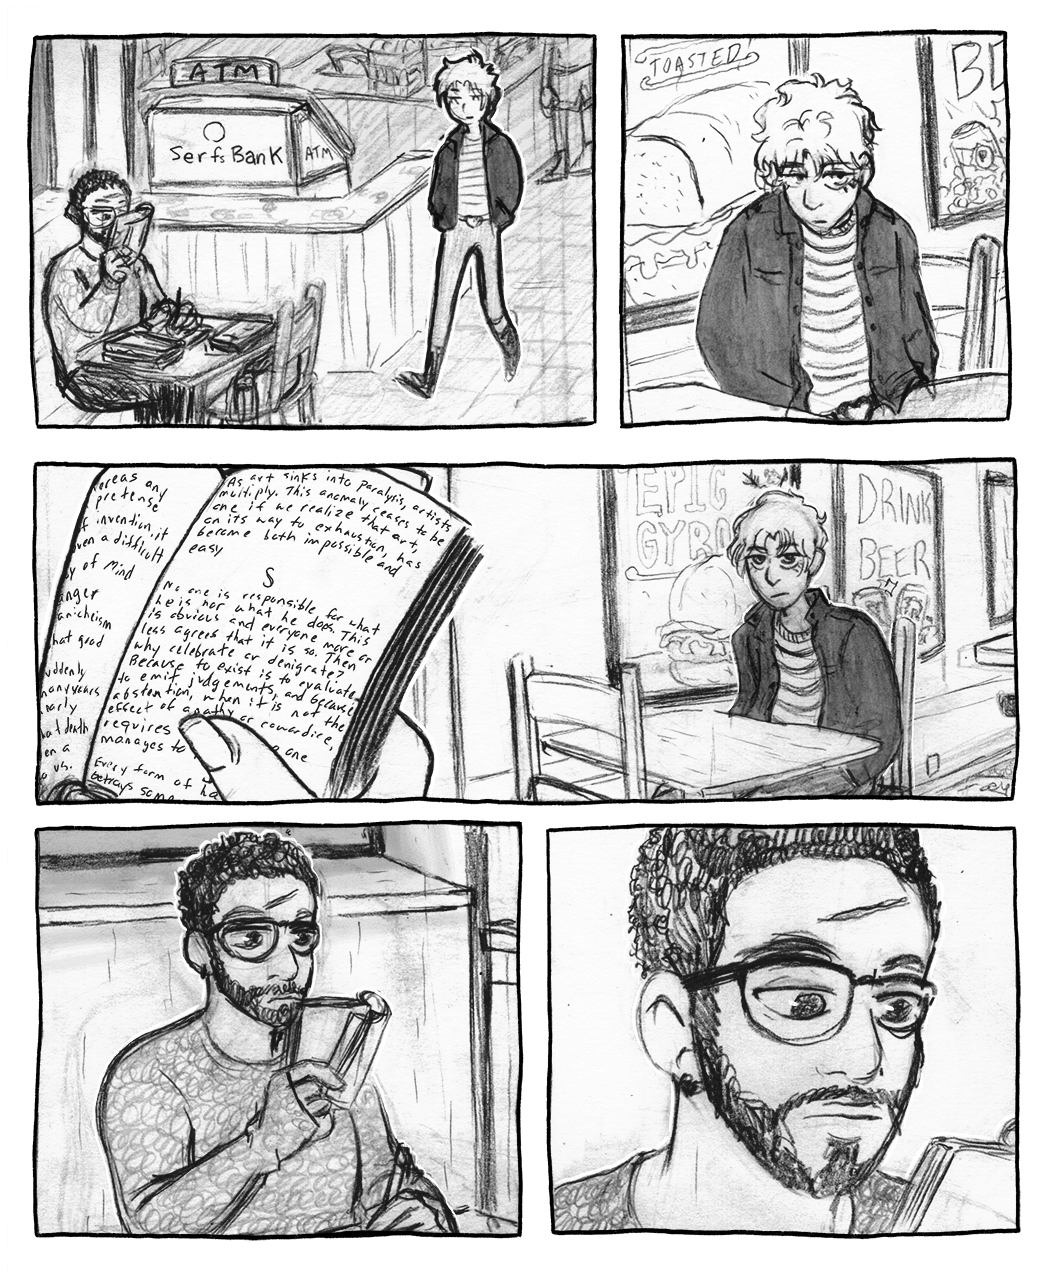 ATM
Serfs Bank
ATM
TOASTED
BE
ereas any
pretense
f invention, it
ven a difficult
y of mind
anger
anicheism
hat good
uddenly
many years
early
hat death
en a
us.
As art sinks into paralysis, artists
multiply. This anomaly ceases to be
one if we realize that art,
on its way to exhaustion, has
become both impossible and
easy
S
No one is responsible for what
he is nor what he does. This
is obvious and everyone more or
less agrees that it is so. Then
why celebrate or denigrate?
Because to exist is to evaluate,
to emit judgements, and because
abstention, when it is not the
effect of apathy or cowardice,
requires
one
manages to
Every form of ha
betrays some
EPIC
GYRO
DRINK
BEER